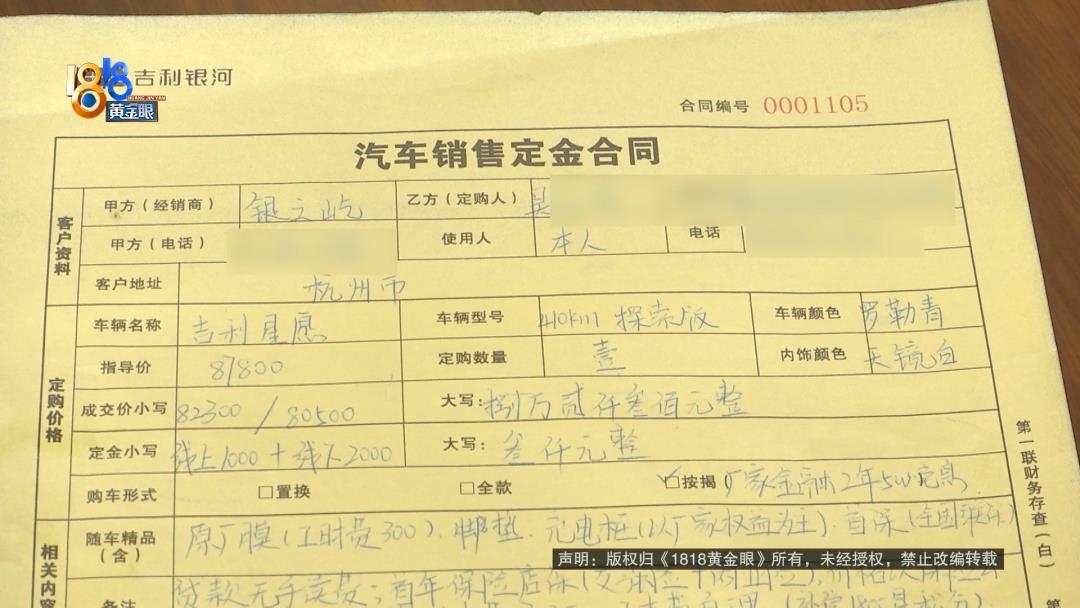 1818
黄金眼
吉利银河
合同编号 0001105
汽车销售定金合同
客户资料
甲方（经销商） 银云屹 乙方（定购人） 吴
甲方（电话） 使用人 本人 电话
客户地址 杭州市
定购价格
车辆名称 吉利星愿 车辆型号 410km 探索版 车辆颜色 罗勒青
指导价 87800 定购数量 壹 内饰颜色 天镜白
成交价小写 82300 / 80500 大写： 捌万贰仟叁佰元整
定金小写 线上1000 + 线下2000 大写： 叁仟元整
购车形式 □置换 □全款 ☑按揭（厂家金融2年5w免息
相关内容
随车精品（含） 原厂膜（工时费300）、脚垫、充电柜（以厂家权益为主）、首保（全国联保）
备注 贷款无手续费；首年保险店保
第一联财务存查（白）
第
声明：版权归《1818黄金眼》所有，未经授权，禁止改编转载